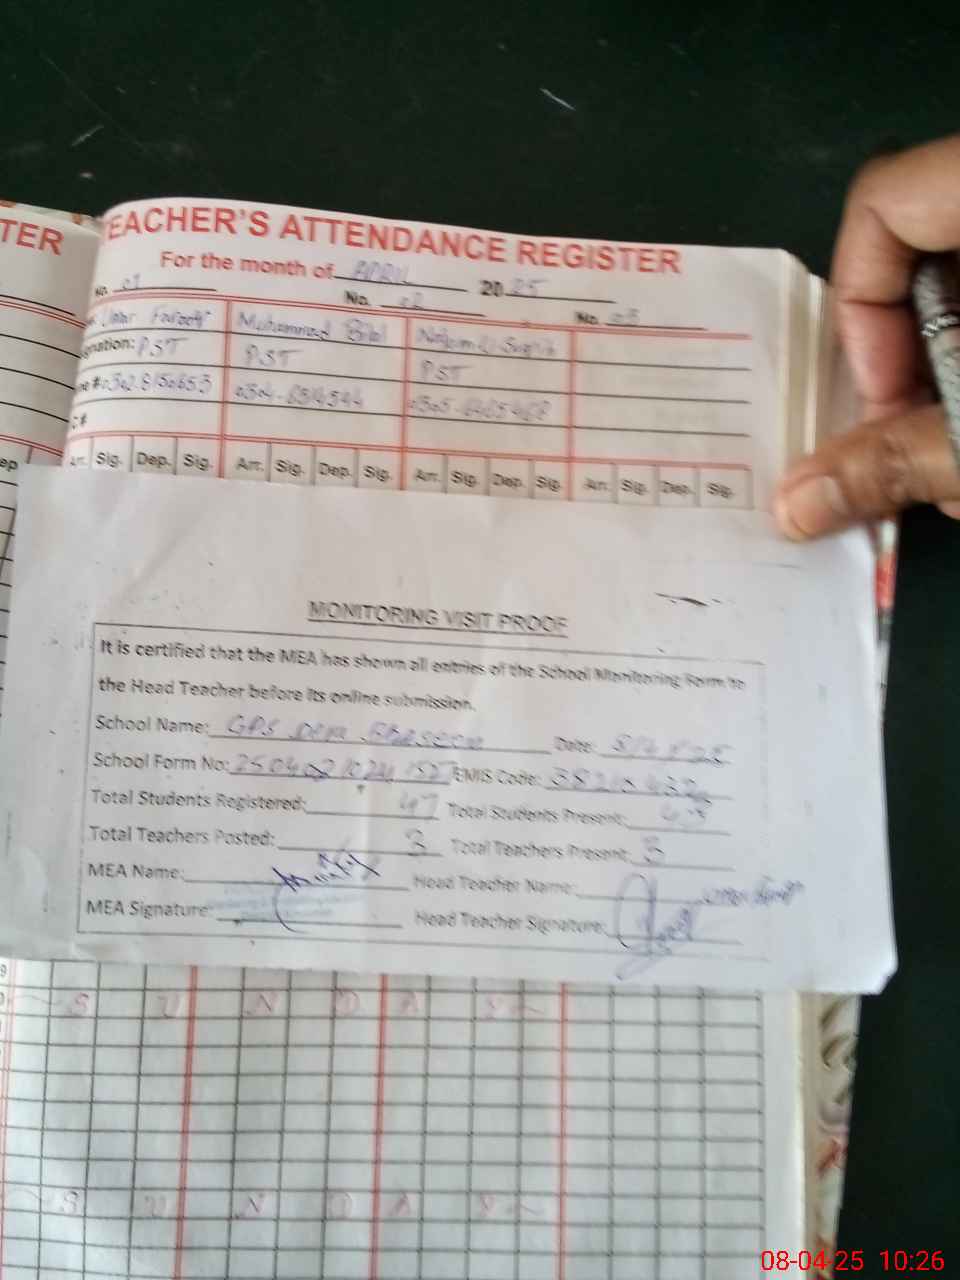 TER
TEACHER'S ATTENDANCE REGISTER
For the month of APRIL 2025
No. 01 No. 02 No. 03
Umar Farooq Muhammad Bilal
Designation: PST PST PST
0304-6514544
C#
Dep
Arr. Sig. Dep. Sig. Arr. Sig. Dep. Sig. Arr. Sig. Dep. Sig. Arr. Sig. Dep. Sig.
MONITORING VISIT PROOF
It is certified that the MEA has shown all entries of the School Monitoring Form to
the Head Teacher before its online submission.
School Name: GPS Date:
School Form No: EMIS Code:
Total Students Registered: 47 Total Students Present: 43
Total Teachers Posted: 3 Total Teachers Present: 3
MEA Name: Head Teacher Name:
MEA Signature: Head Teacher Signature:
S U N D A Y
S U N D A Y
08-04-25 10:26